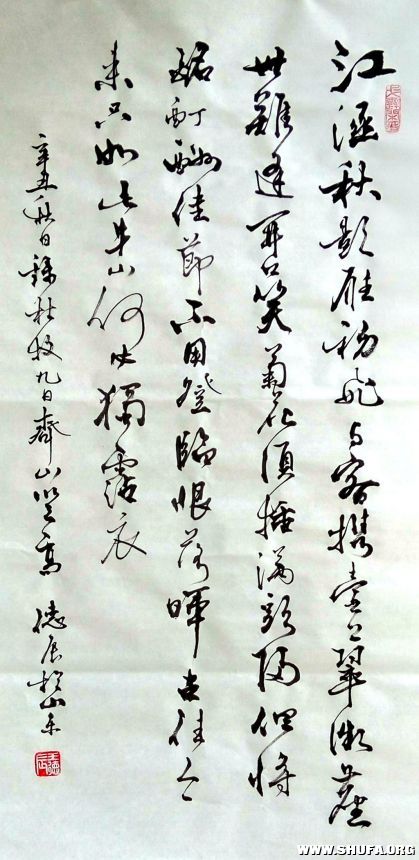 江涵秋影雁初飛与客携壺上翠微塵
世難逢开口笑菊花須插滿頭歸但將
酩酊酬佳節不用登臨恨落暉古往今
来只如此牛山何必獨霑衣
辛丑秋日録杜牧九日齊山登高 德
WWW.SHUFA.ORG